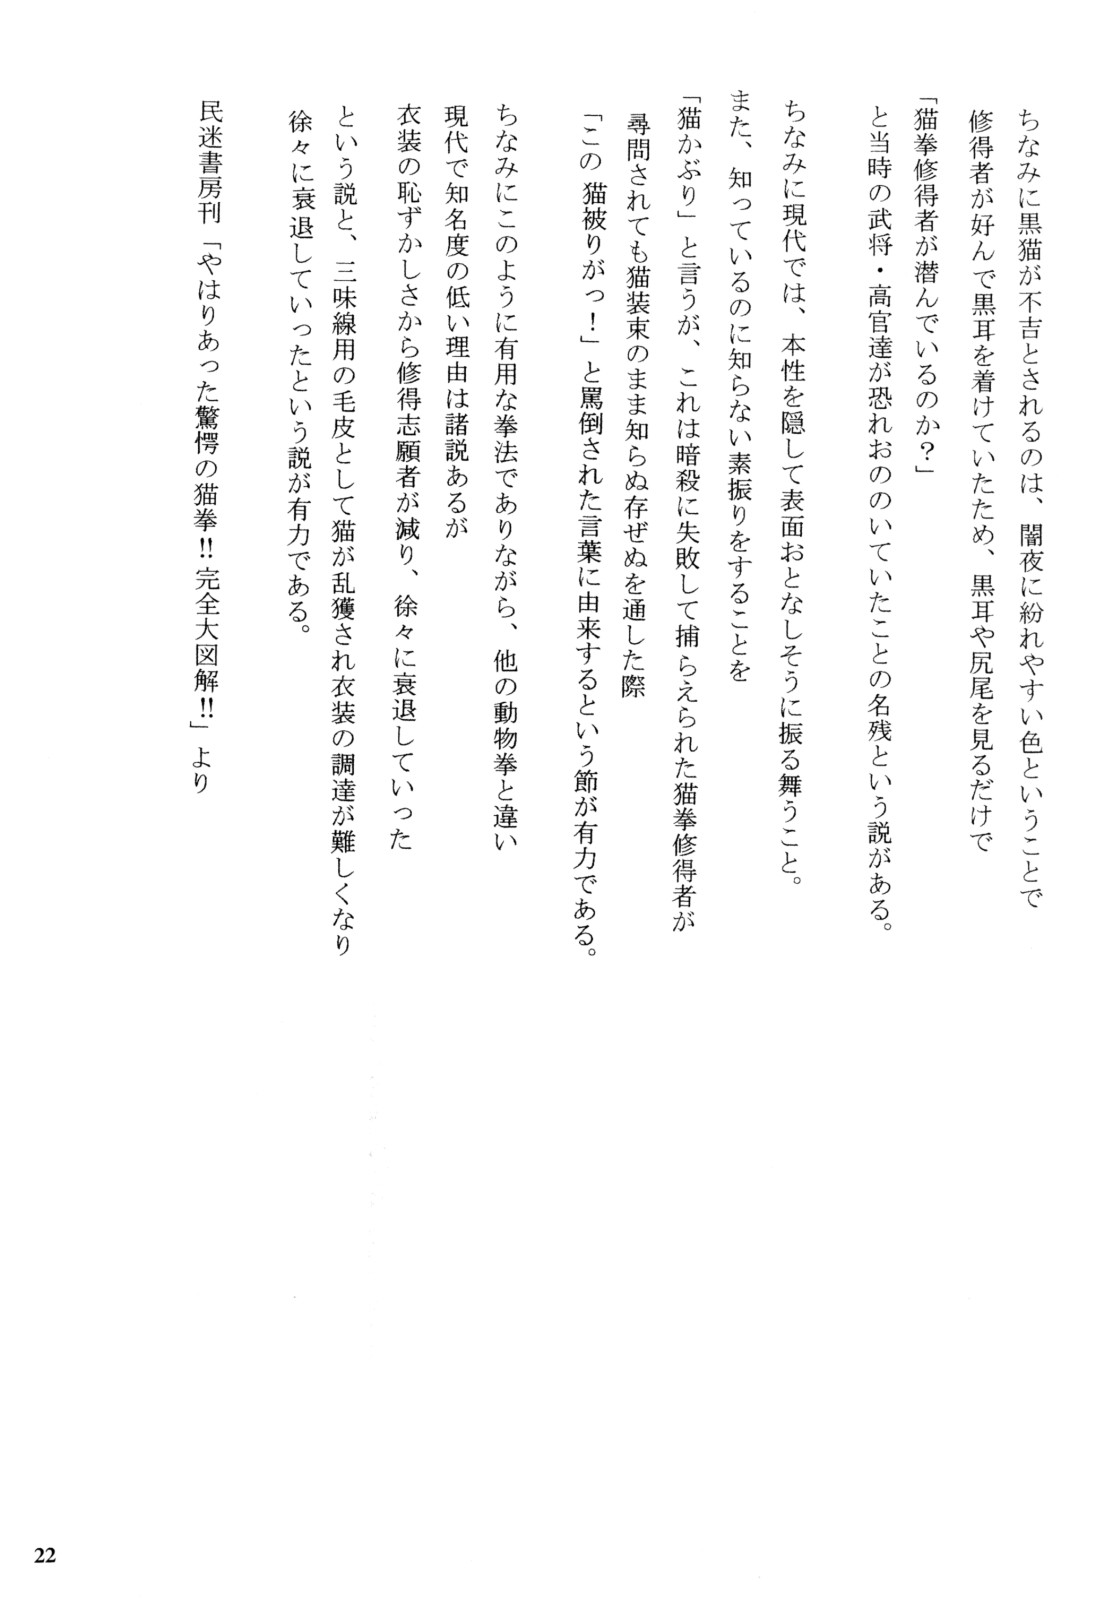 ちなみに黒猫が不吉とされるのは、闇夜に紛れやすい色ということで
修得者が好んで黒耳を着けていたため、黒耳や尻尾を見るだけで
「猫拳修得者が潜んでいるのか？」
と当時の武将・高官達が恐れおののいていたことの名残という説がある。
ちなみに現代では、本性を隠して表面おとなしそうに振る舞うこと。
また、知っているのに知らない素振りをすることを
「猫かぶり」と言うが、これは暗殺に失敗して捕らえられた猫拳修得者が
尋問されても猫装束のまま知らぬ存ぜぬを通した際
「この猫被りがっ！」と罵倒された言葉に由来するという節が有力である。
ちなみにこのように有用な拳法でありながら、他の動物拳と違い
現代で知名度の低い理由は諸説あるが
衣装の恥ずかしさから修得志願者が減り、徐々に衰退していった
という説と、三味線用の毛皮として猫が乱獲され衣装の調達が難しくなり
徐々に衰退していったという説が有力である。
民迷書房刊「やはりあった驚愕の猫拳!!完全大図解!!」より
22